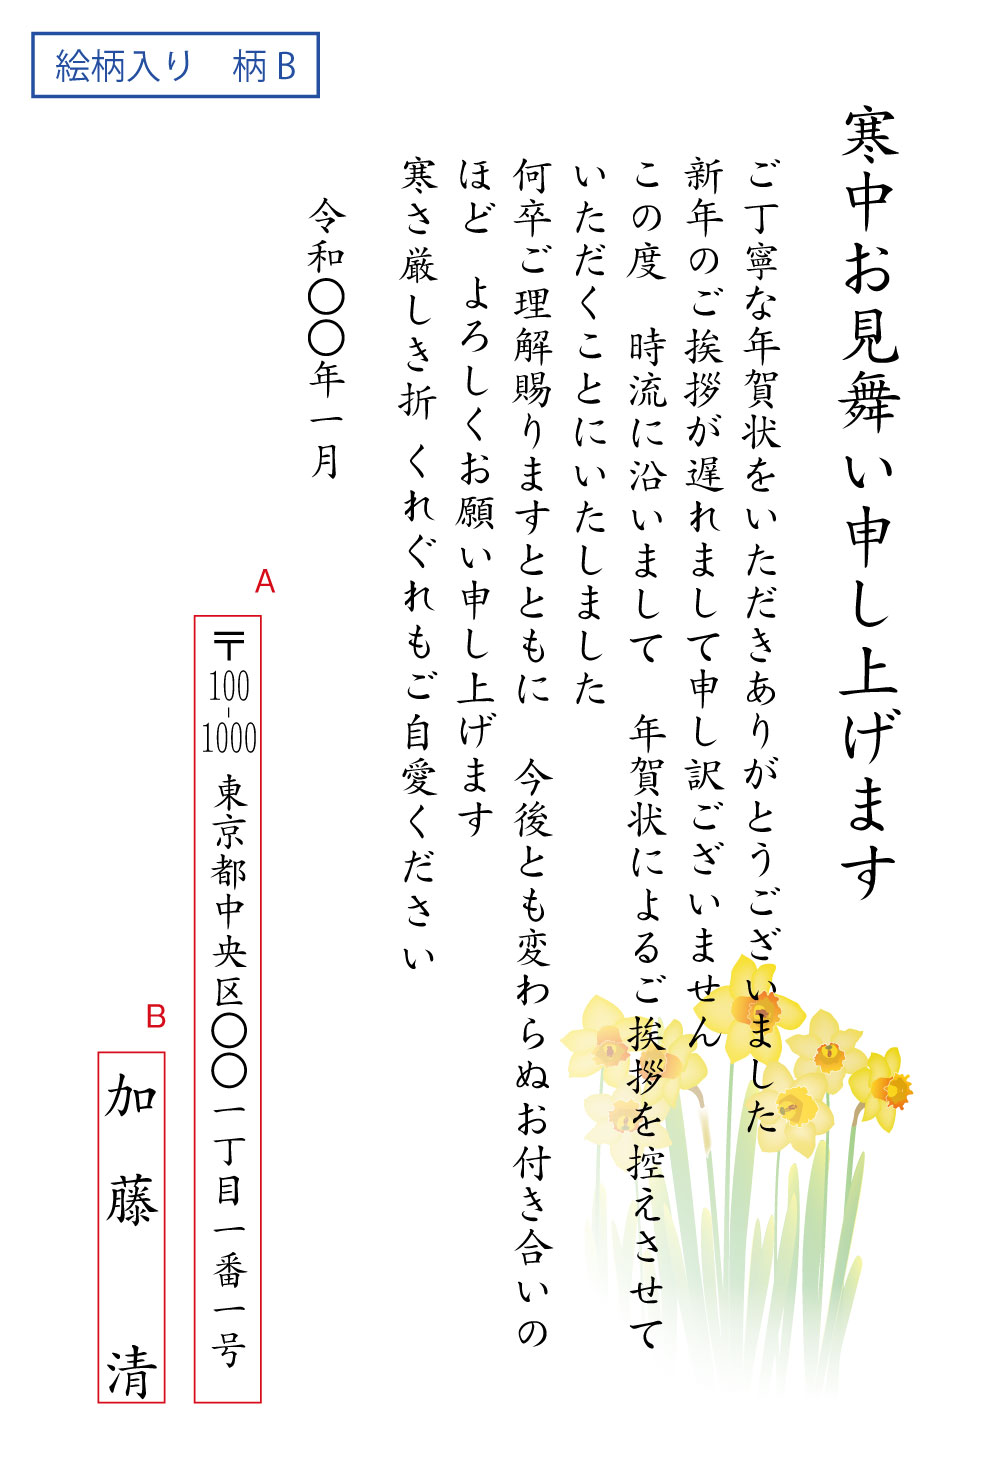 絵柄入り　柄B
寒中お見舞い申し上げます
ご丁寧な年賀状をいただきありがとうございました
新年のご挨拶が遅れまして申し訳ございません
この度　時流に沿いまして　年賀状によるご挨拶を控えさせて
いただくことにいたしました
何卒ご理解賜りますとともに　今後とも変わらぬお付き合いの
ほど　よろしくお願い申し上げます
寒さ厳しき折 くれぐれもご自愛ください
令和〇〇年一月
A
〒100-1000 東京都中央区〇〇一丁目一番一号
B
加藤　清